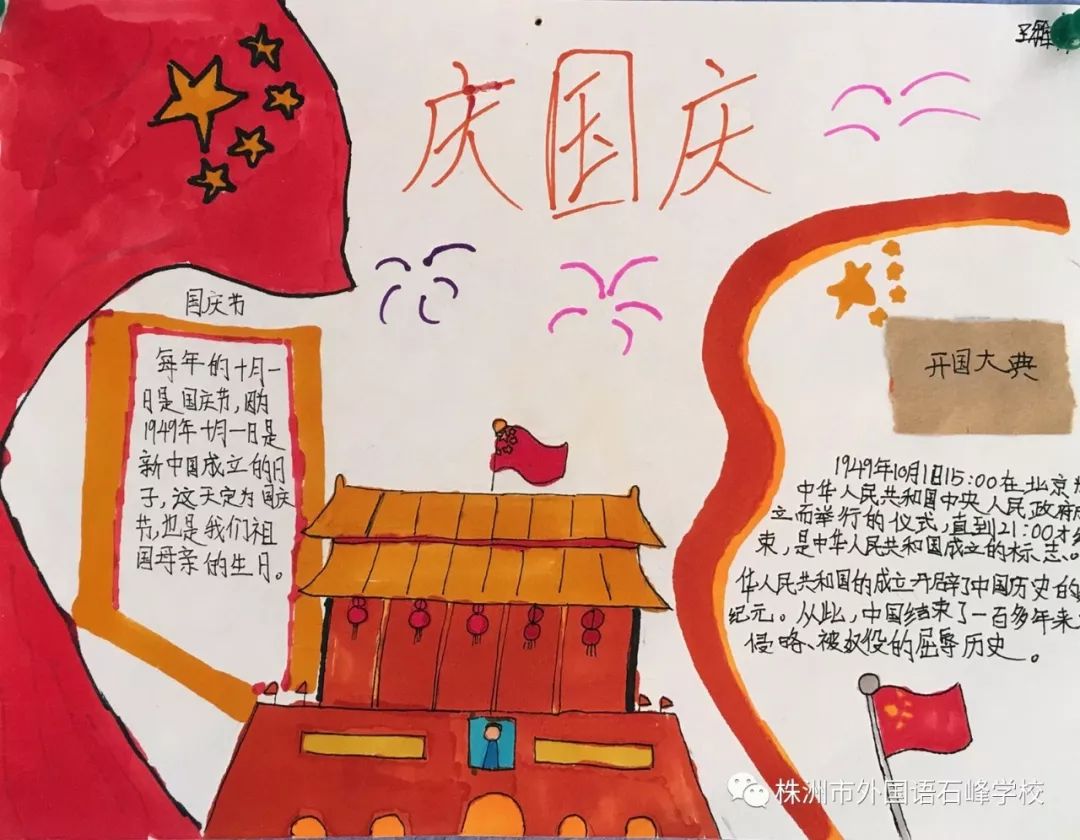 庆国庆
国庆节
每年的十月一
日是国庆节,因为
1949年十月一日是
新中国成立的日
子,这天定为国庆
节,也是我们祖
国母亲的生日。
开国大典
1949年10月1日15:00在北京
中华人民共和国中央人民政府成
立而举行的仪式,直到21:00才
束,是中华人民共和国成立的标志。
华人民共和国的成立开辟了中国历史的
纪元。从此,中国结束了一百多年来
侵略、被奴役的屈辱历史。
株洲市外国语石峰学校